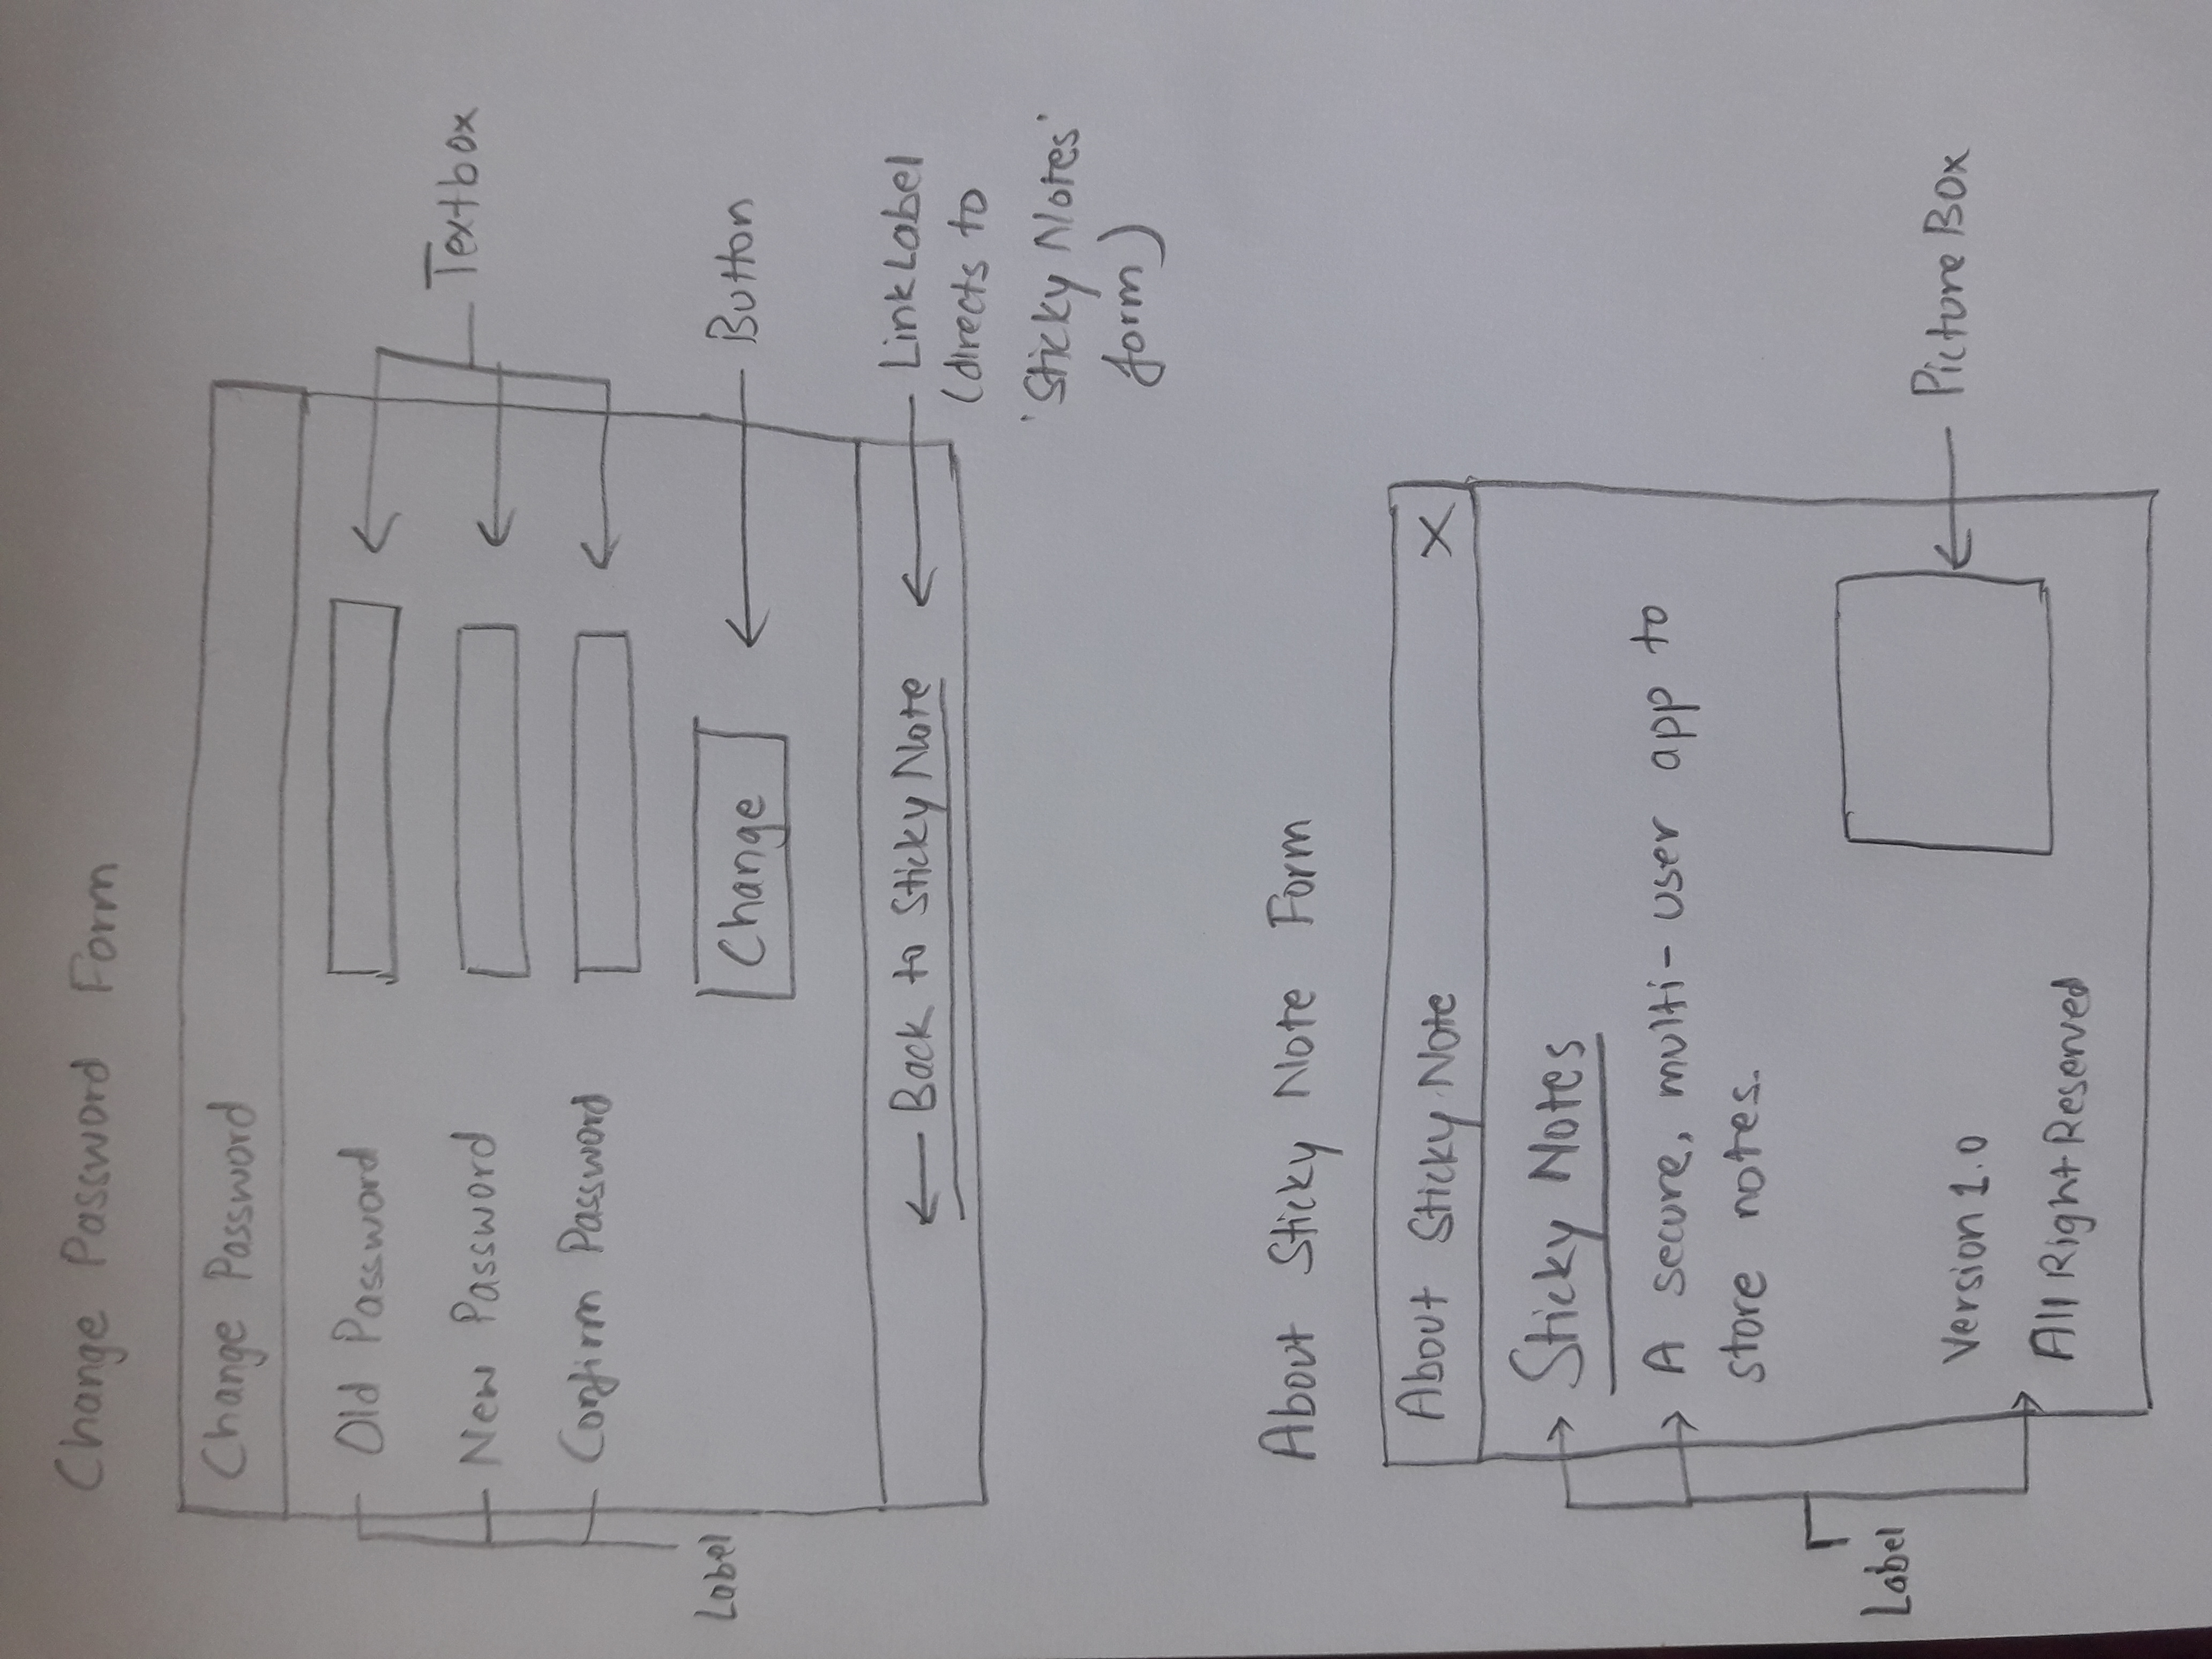 Change Password Form
Change Password
Old Password
New Password
Confirm Password
Textbox
Label
Change
Button
← Back to Sticky Note
LinkLabel
(directs to
'Sticky Notes'
form)
About Sticky Note Form
About Sticky Note X
Sticky Notes
A secure, multi-user app to
store notes.
Label
Version 1.0
All Right Reserved
Picture Box